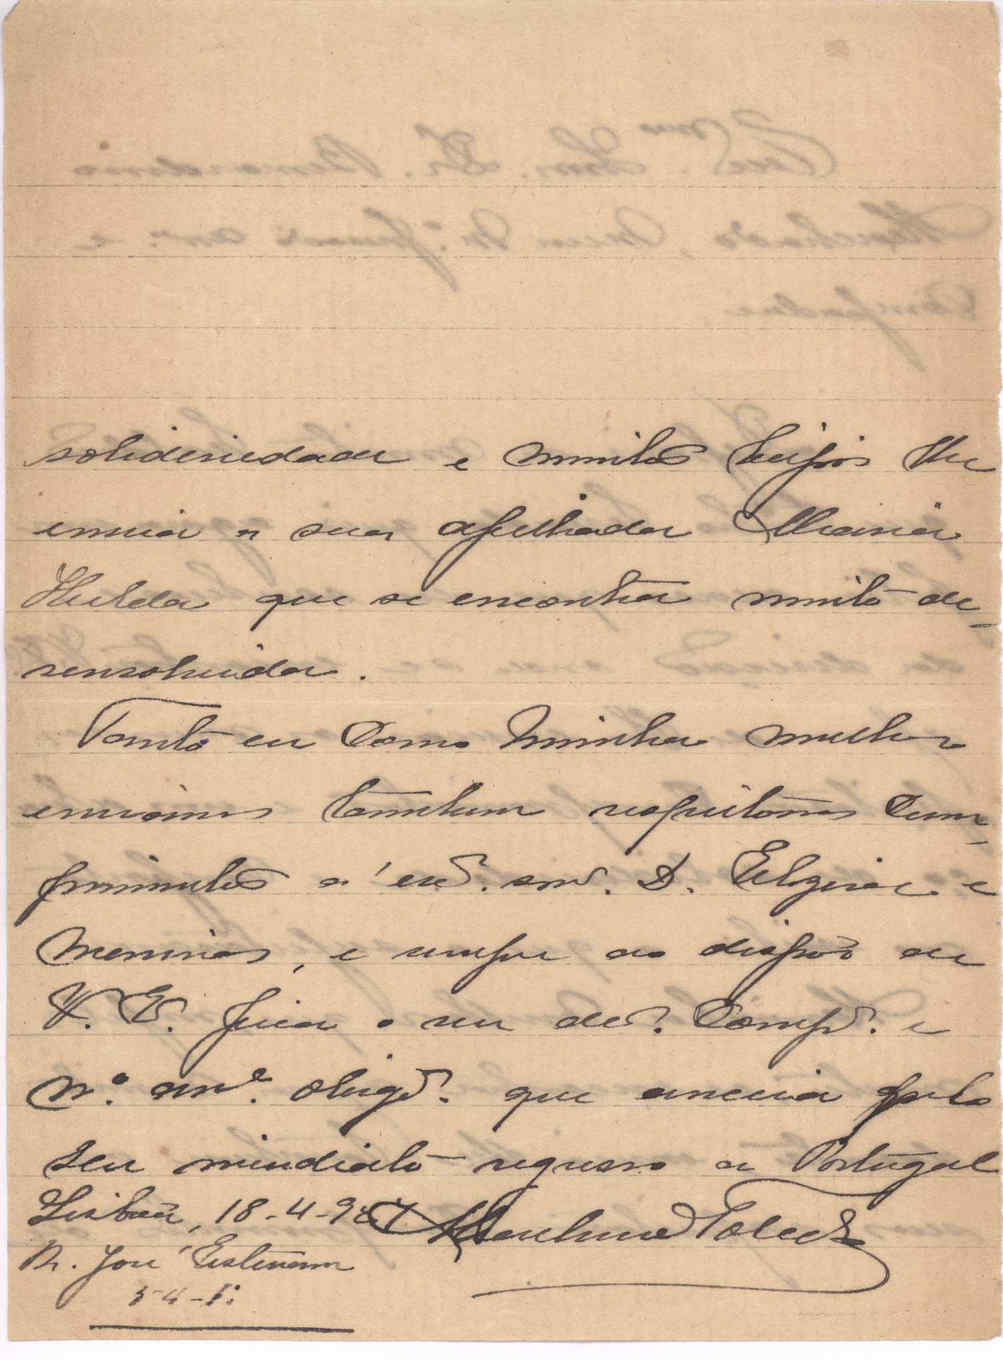 solideriedade e muitos beijos lhe
envia a sua afilhada Maria
Hulda que se encontra muito de-
senvolvida.
Tanto eu como minha mulher
enviamos tambem respeitosos cum-
primentos a' exª. snrª. D. Elzira e
meninas, e sempre ao dispôr de
V. Eª. fica o seu dedº. compª. e
mº. amº. obrigdº. que anceia pelo
seu imediato regresso a Portugal
Lisboa, 18-4-927 Toledo
R. José Estevam
54-1º